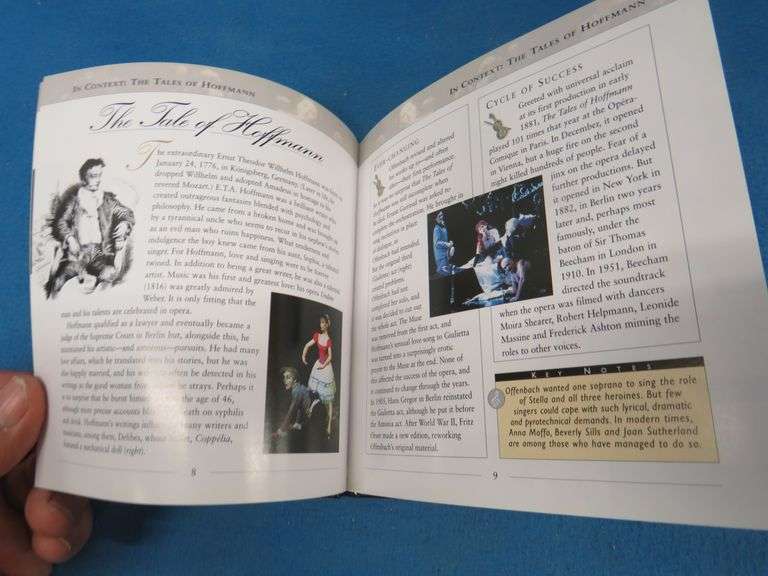 IN CONTEXT: THE TALES OF HOFFMANN
The Tale of Hoffmann
The extraordinary Ernst Theodor Willhelm Hoffmann was born on
January 24, 1776, in Königsberg, Germany. (Later in life, he
dropped Willhelm and adopted Amadeus in homage to his
revered Mozart.) E.T.A. Hoffmann was a lawyer who
created outrageous fantasies blended with psychology and
philosophy. He came from a broken home and was brought up
by a tyrannical uncle who seems to recur in his
as an evil man who ruins happiness. What tenderness and
indulgence the boy knew came from his aunt, Sophie, a talented
singer. For Hoffmann, love and singing were to be forever
twined. In addition to being a great writer, he was also a
artist. Music was his first and greatest love: his opera Undine
(1816) was greatly admired by
Weber. It is only fitting that the
man and his talents are celebrated in opera.
Hoffmann qualified as a lawyer and eventually became a
judge of the Supreme Court in Berlin but, alongside this, he
maintained his artistic—and amorous—pursuits. He had many
love affairs, which he translated into his stories, but he was
also happily married, and his wife is often be detected in his
writings as the good woman from whom he strays. Perhaps it
is no surprise that he burnt himself out by the age of 46,
although more precise accounts blame his death on syphilis
and drink. Hoffmann's writings influenced many writers and
musicians; among them, Delibes, whose ballet, Coppélia,
featured a mechanical doll (right).
8
IN CONTEXT: THE TALES OF HOFFMANN
EVER-CHANGING
Offenbach revised and altered
his works up to—and often
after—their first performance.
The Tales of
Hoffmann was still incomplete when
he died. Ernest Guiraud was asked to
He brought in
in place
of
Offenbach had intended.
But the original third
(Giulietta) act (right)
created problems.
Offenbach had not
completed her solo, and
it was decided to cut out
the whole act. The Muse
was removed from the first act, and
Hoffmann's unusual love song to Giulietta
was turned into a surprisingly erotic
proposal to the Muse at the end. None of
this affected the success of the opera, and
it continued to change through the years.
In 1905, Hans Gregor in Berlin reinstated
the Giulietta act, although he put it before
the Antonia act. After World War II, Fritz
Oeser made a new edition, reworking
Offenbach's original material.
CYCLE OF SUCCESS
Greeted with universal acclaim
at its first production in early
1881, The Tales of Hoffmann
played 101 times that year at the Opéra-
Comique in Paris. In December, it opened
in Vienna, but a huge fire on the second
night killed hundreds of people. Fear of a
jinx on the opera delayed
further productions. But
it opened in New York in
1882, in Berlin two years
later and, perhaps most
famously, under the
baton of Sir Thomas
Beecham in London in
1910. In 1951, Beecham
directed the soundtrack
when the opera was filmed with dancers
Moira Shearer, Robert Helpmann, Leonide
Massine and Frederick Ashton miming the
roles to other voices.
KEY NOTES
Offenbach wanted one soprano to sing the role
of Stella and all three heroines. But few
singers could cope with such lyrical, dramatic
and pyrotechnical demands. In modern times,
Anna Moffo, Beverly Sills and Joan Sutherland
are among those who have managed to do so.
9